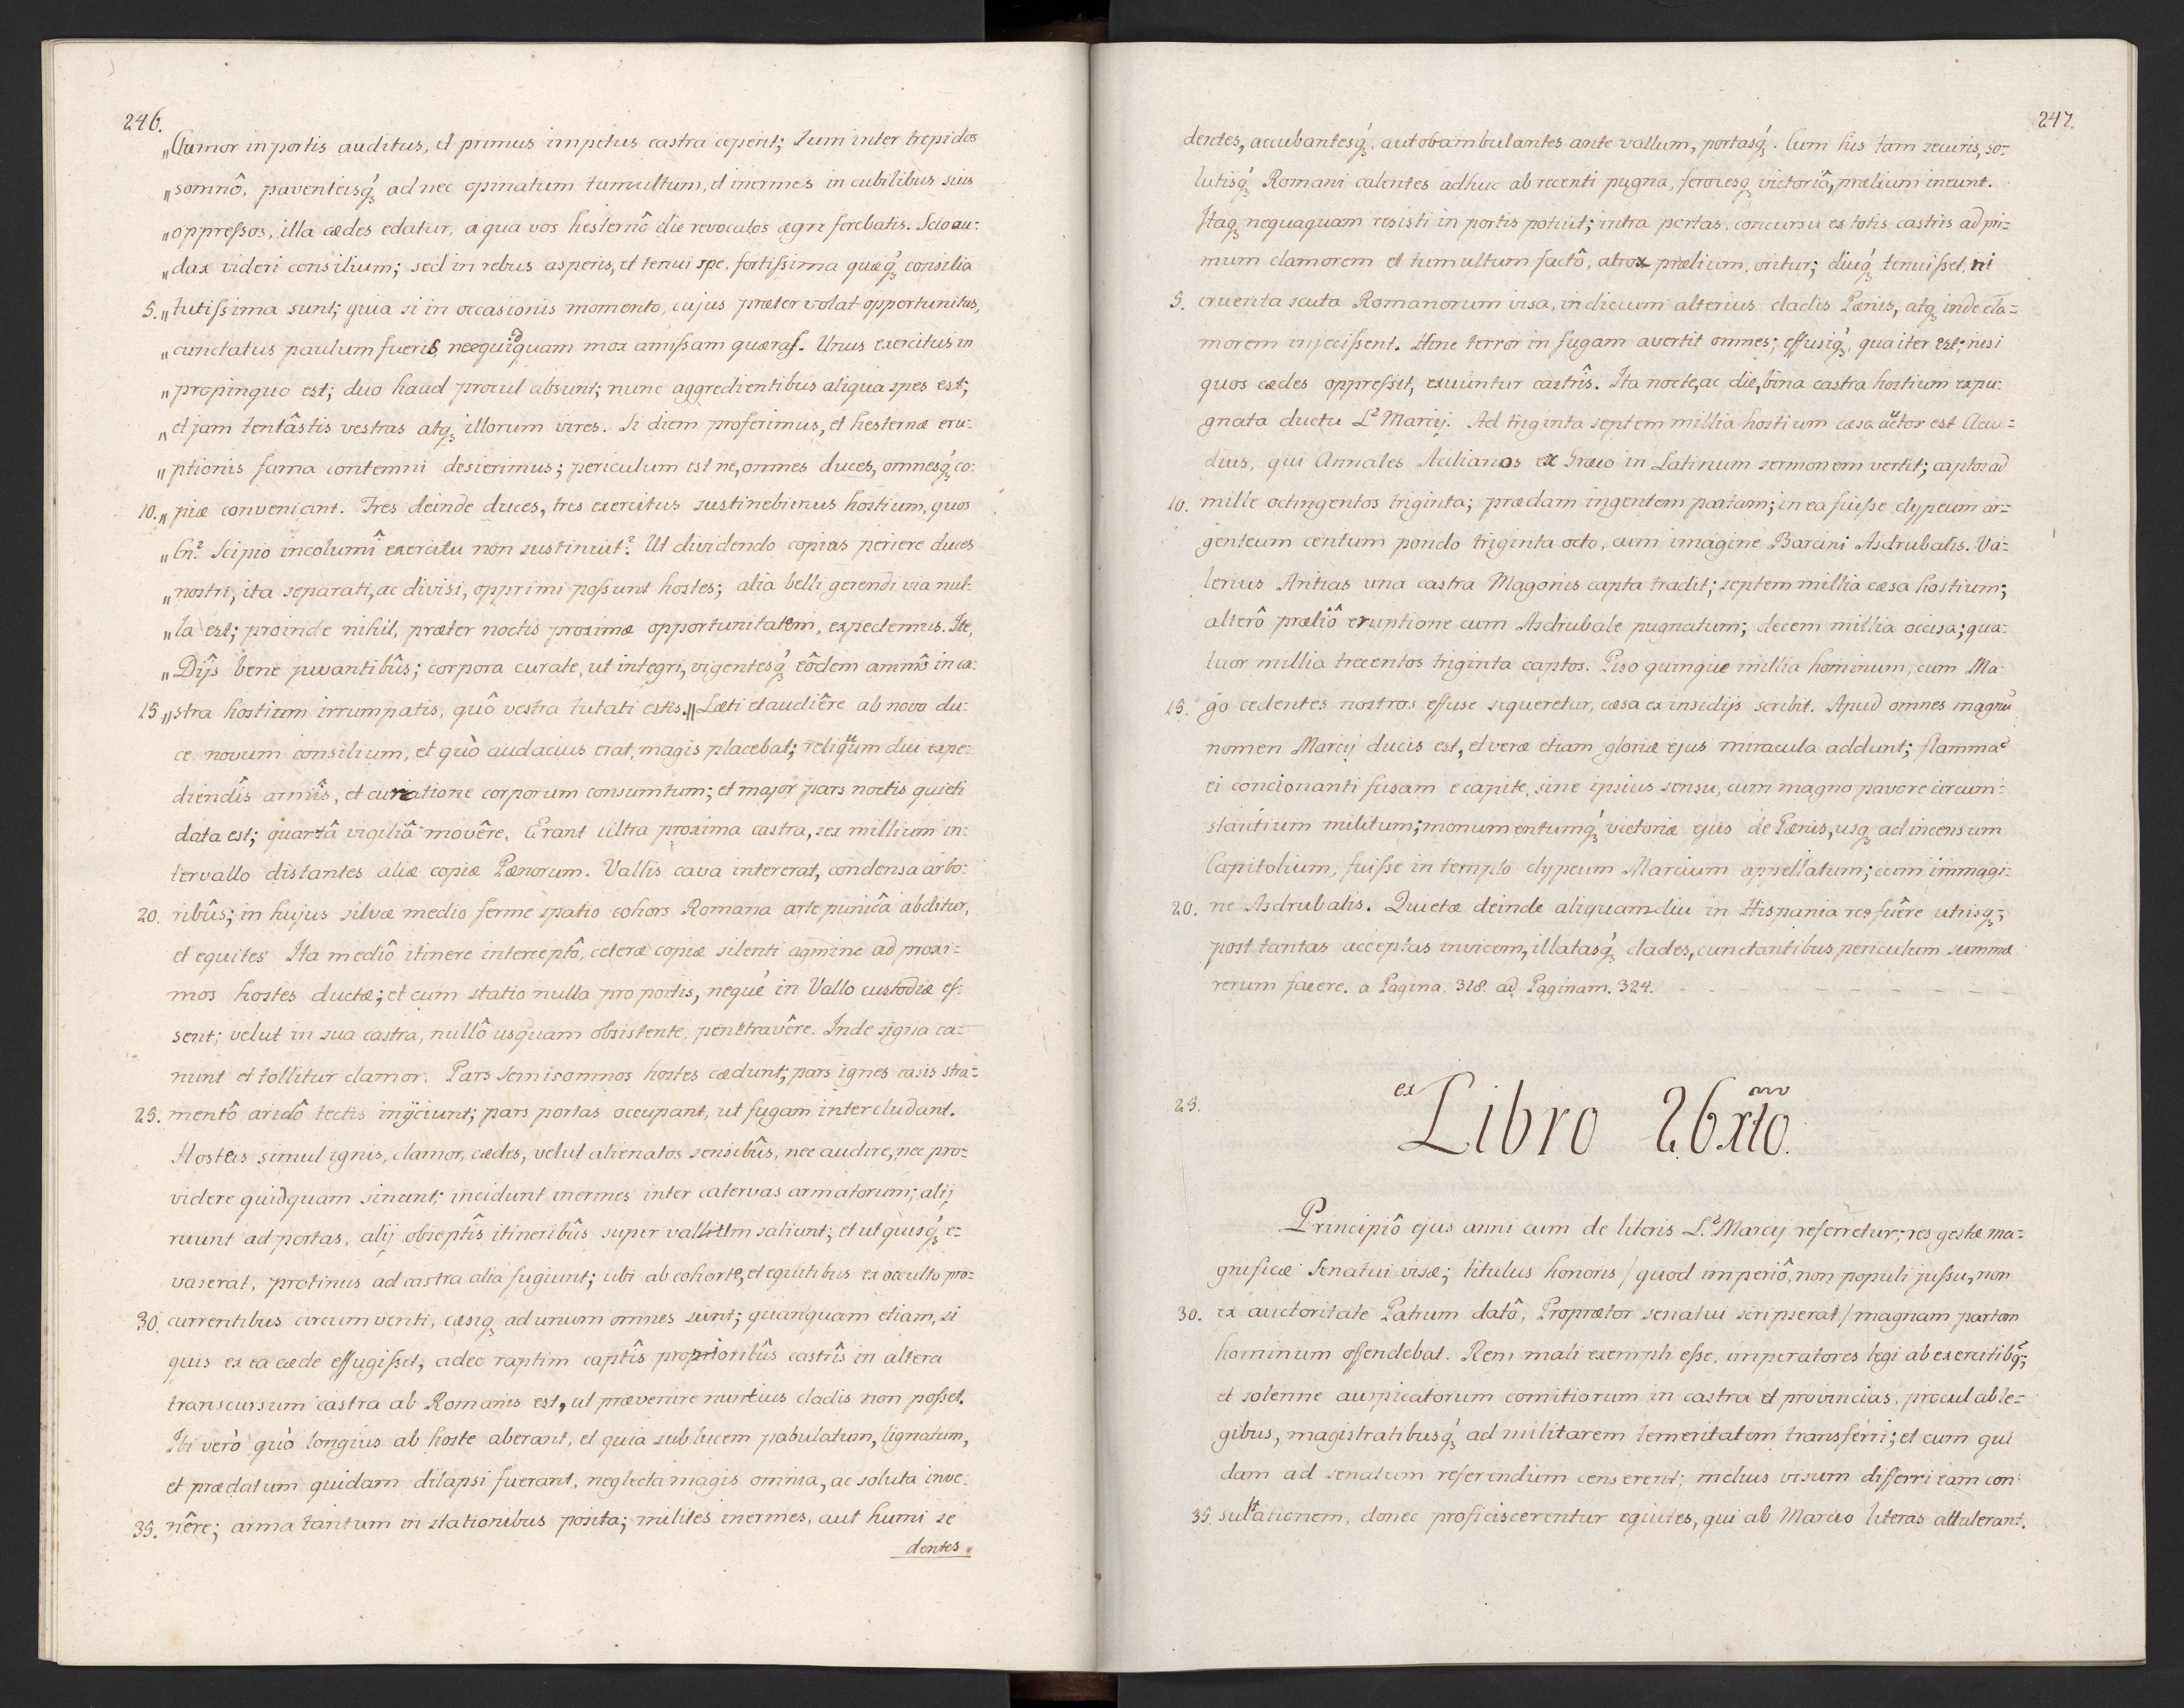 246.
„Clamor in portis auditus, et primus impetus castra ceperit; Tum inter trepidos
„somnô, paventeisq́ꝫ ad nec opinatum tumultum, et inermes in cubilibus suis
„oppreſsos, illa cædes edatur, a qua vos hesternô die revocatos ægre ferebatis. Scio au:
„dax videri consilium; sed in rebus asperis, et tenui spe, fortiſsima quæq́ꝫ consilia
5. „tutiſsima sunt; quia si in occasionis momento, cujus præter volat opportunitas,
„cunctatus paulum fueris, nequidquam mox amiſsam quæras. Unus exercitus in
„propinquo est; duo haud procul absunt; nunc aggredientibus aliqua spes est;
„et jam tentâstis vestras atqꝫ illorum vires. Si diem proferimus, et hesternæ eru:
„ptionis fama contemni desierimus; periculum est ne, omnes duces, omnesq́ꝫ co:
10. „piæ conveniant. Tres deinde duces, tres exercitus sustinebimus hostium, quos
„Cn.² Scipio incolumî exercitu non sustinuit? Ut dividendo copias periere duces
„nostri, ita separati, ac divisi, opprimi poſsunt hostes; alia belli gerendi via nul:
„la est; proinde nihil, præter noctis proximæ opportunitatem, expectemus. Ite,
„Dijs bene juvantibûs; corpora curate, ut integri, vigentesq́ꝫ eôdem animô in ca:
15 „stra hostium irrumpatis, quô vestra tutati estis.„ Læti et audiêre ab novo du:
ce novum consilium, et quò audacius erat, magis placebat; reliquum diei expe:
diendîs armîs, et curatione corporum consumtum; et major pars noctis quieti
data est; quartâ vigiliâ movêre. Erant ultra proxima castra, sex millium in:
tervallo distantes aliæ copiæ Pœnorum. Vallis cava intererat, condensa arbo:
20. ribûs; in hujus silvæ medio ferme spatio cohors Romana arte punicâ abditur,
et equites Ita mediô itinere interceptô, ceteræ copiæ silenti agmine ad proxi:
mos hostes ductæ; et cum statio nulla pro portis, neque in Vallo custodiæ eſ:
sent; velut in sua castra, nullô usquam obsistente, penetravêre. Inde signa ca:
nunt et tollitur clamor. Pars semisomnos hostes cædunt; pars ignes casis stra:
25. mentô aridô tectis inijciunt; pars portas occupant, ut fugam intercludant.
Hosteis simul ignis, clamor, cædes, velut alienatos sensibûs, nec audire, nec pro:
videre quidquam sinunt; incidunt inermes inter catervas armatorum; alij
ruunt ad portas, alij obseptîs itineribûs super vallum saliunt; et ut quisq́ꝫ e:
vaserat, protinus ad castra alia fugiunt; ubi ab cohorte, et equitibus ex occulto pro:
30. currentibus circumventi, cæsiqꝫ ad unum omnes sunt; quanquam etiam, si
quis ex ea cæde effugiſset, adeo raptim captîs proprioribûs castrîs in altera
transcursum castra ab Romanis est, ut prævenire nuntius cladis non poſset.
Ibi verò quò longius ab hoste aberant, et quia sub lucem pabulatum, lignatum,
et prædatum quidam dilapsi fuerant, neglecta magis omnia, ac soluta inve:
35. nêre; arma tantum in stationibus posita; milites inermes, aut humi se
dentes.
247.
dentes, accubantesq́ꝫ, aut obambulantes ante vallum, portasq́ꝫ. Cum his tam securis, so:
lutisq́ꝫ Romani calentes adhuc ab recenti pugna, ferocesqꝫ victoriâ, prælium ineunt.
Itaqꝫ nequaquam resisti in portis potuit; intra portas, concursu ex totis castris ad pri:
mum clamorem et tumultum factô, atrox prælium oritur; diuq́ꝫ tenuiſset, ni
5. cruenta scuta Romanorum visa, indicium alterius cladis Pœnis, atqꝫ inde cla:
morem injeciſsent. Hinc terror in fugam avertit omnes; effusiq́ꝫ, qua iter est; nisi
quos cædes oppreſsit, exuuntur castrîs. Ita nocte, ac die, bina castra hostium expu:
gnata ductu L² Marcij. Ad triginta septem millia hostium cæsa auctor est Clau:
dius, qui Annales Acilianos ex Græco in Latinum sermonem vertit; captos ad
10. mille octingentos triginta; prædam ingentem partam; in ea fuiſse clypeum ar:
genteum centum pondo triginta octo, cum imagine Barcini Asdrubalis. Va:
lerius Antias una castra Magonis capta tradit; septem millia cæsa hostium;
alterô præliô eruptione cum Asdrubale pugnatum; decem millia occisa; qua:
tuor millia trecentos triginta captos. Piso quinque millia hominum, cum Ma:
15. go cedentes nostros effuse sequeretur, cæsa ex insidijs scribit. Apud omnes magnū
nomen Marcij ducis est, et veræ etiam gloriæ ejus miracula addunt; flammā
ei concionanti fusam e capite, sine ipsius sensu, cum magno pavore circum:
stantium militum; monumentumq́ꝫ victoriæ ejus de Pœnis, usqꝫ ad incensum
Capitolium, fuiſse in templo clypeum Marcium appellatum; cum immagi:
20. ne Asdrubalis. Quietæ deinde aliquamdiu in Hispania res fuêre utrisqꝫ;
post tantas acceptas invicem, illatasq́ꝫ clades, cunctantibus periculum summæ
rerum facere. a Pagina. 318. ad Paginam. 324.
25.
ex Libro 26xto mo.
Principiô ejus anni cum de literis L.² Marcij referretur; res gestæ ma:
gnificæ Senatui visæ; titulus honoris / quod imperiô, non populi juſsu, non
30. ex auctoritate Patrum datô, Proprætor senatui scripserat / magnam partem
hominum offendebat. Rem mali exempli eſse, imperatores legi ab exercitibꝫ;
et solenne auspicatorum comitiorum in castra et provincias, procul ab le:
gibus, magistratibusq́ꝫ ad militarem temeritatem transferri; et cum qui
dam ad senatum referendum censerent; melius visum differri eam con:
35. sultationem, donec proficiscerentur equites, qui ab Marcio literas attulerant.